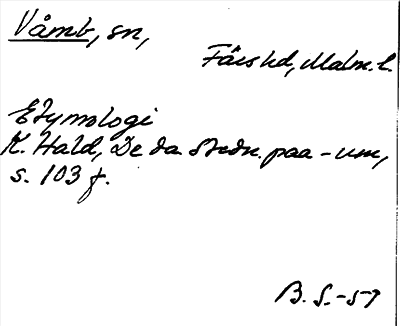 Våmb, sn,
Färs hd, Malm. l.
Etymologi
K. Hald, De da. Stedn. paa -um,
s. 103 f.
B. S. -57